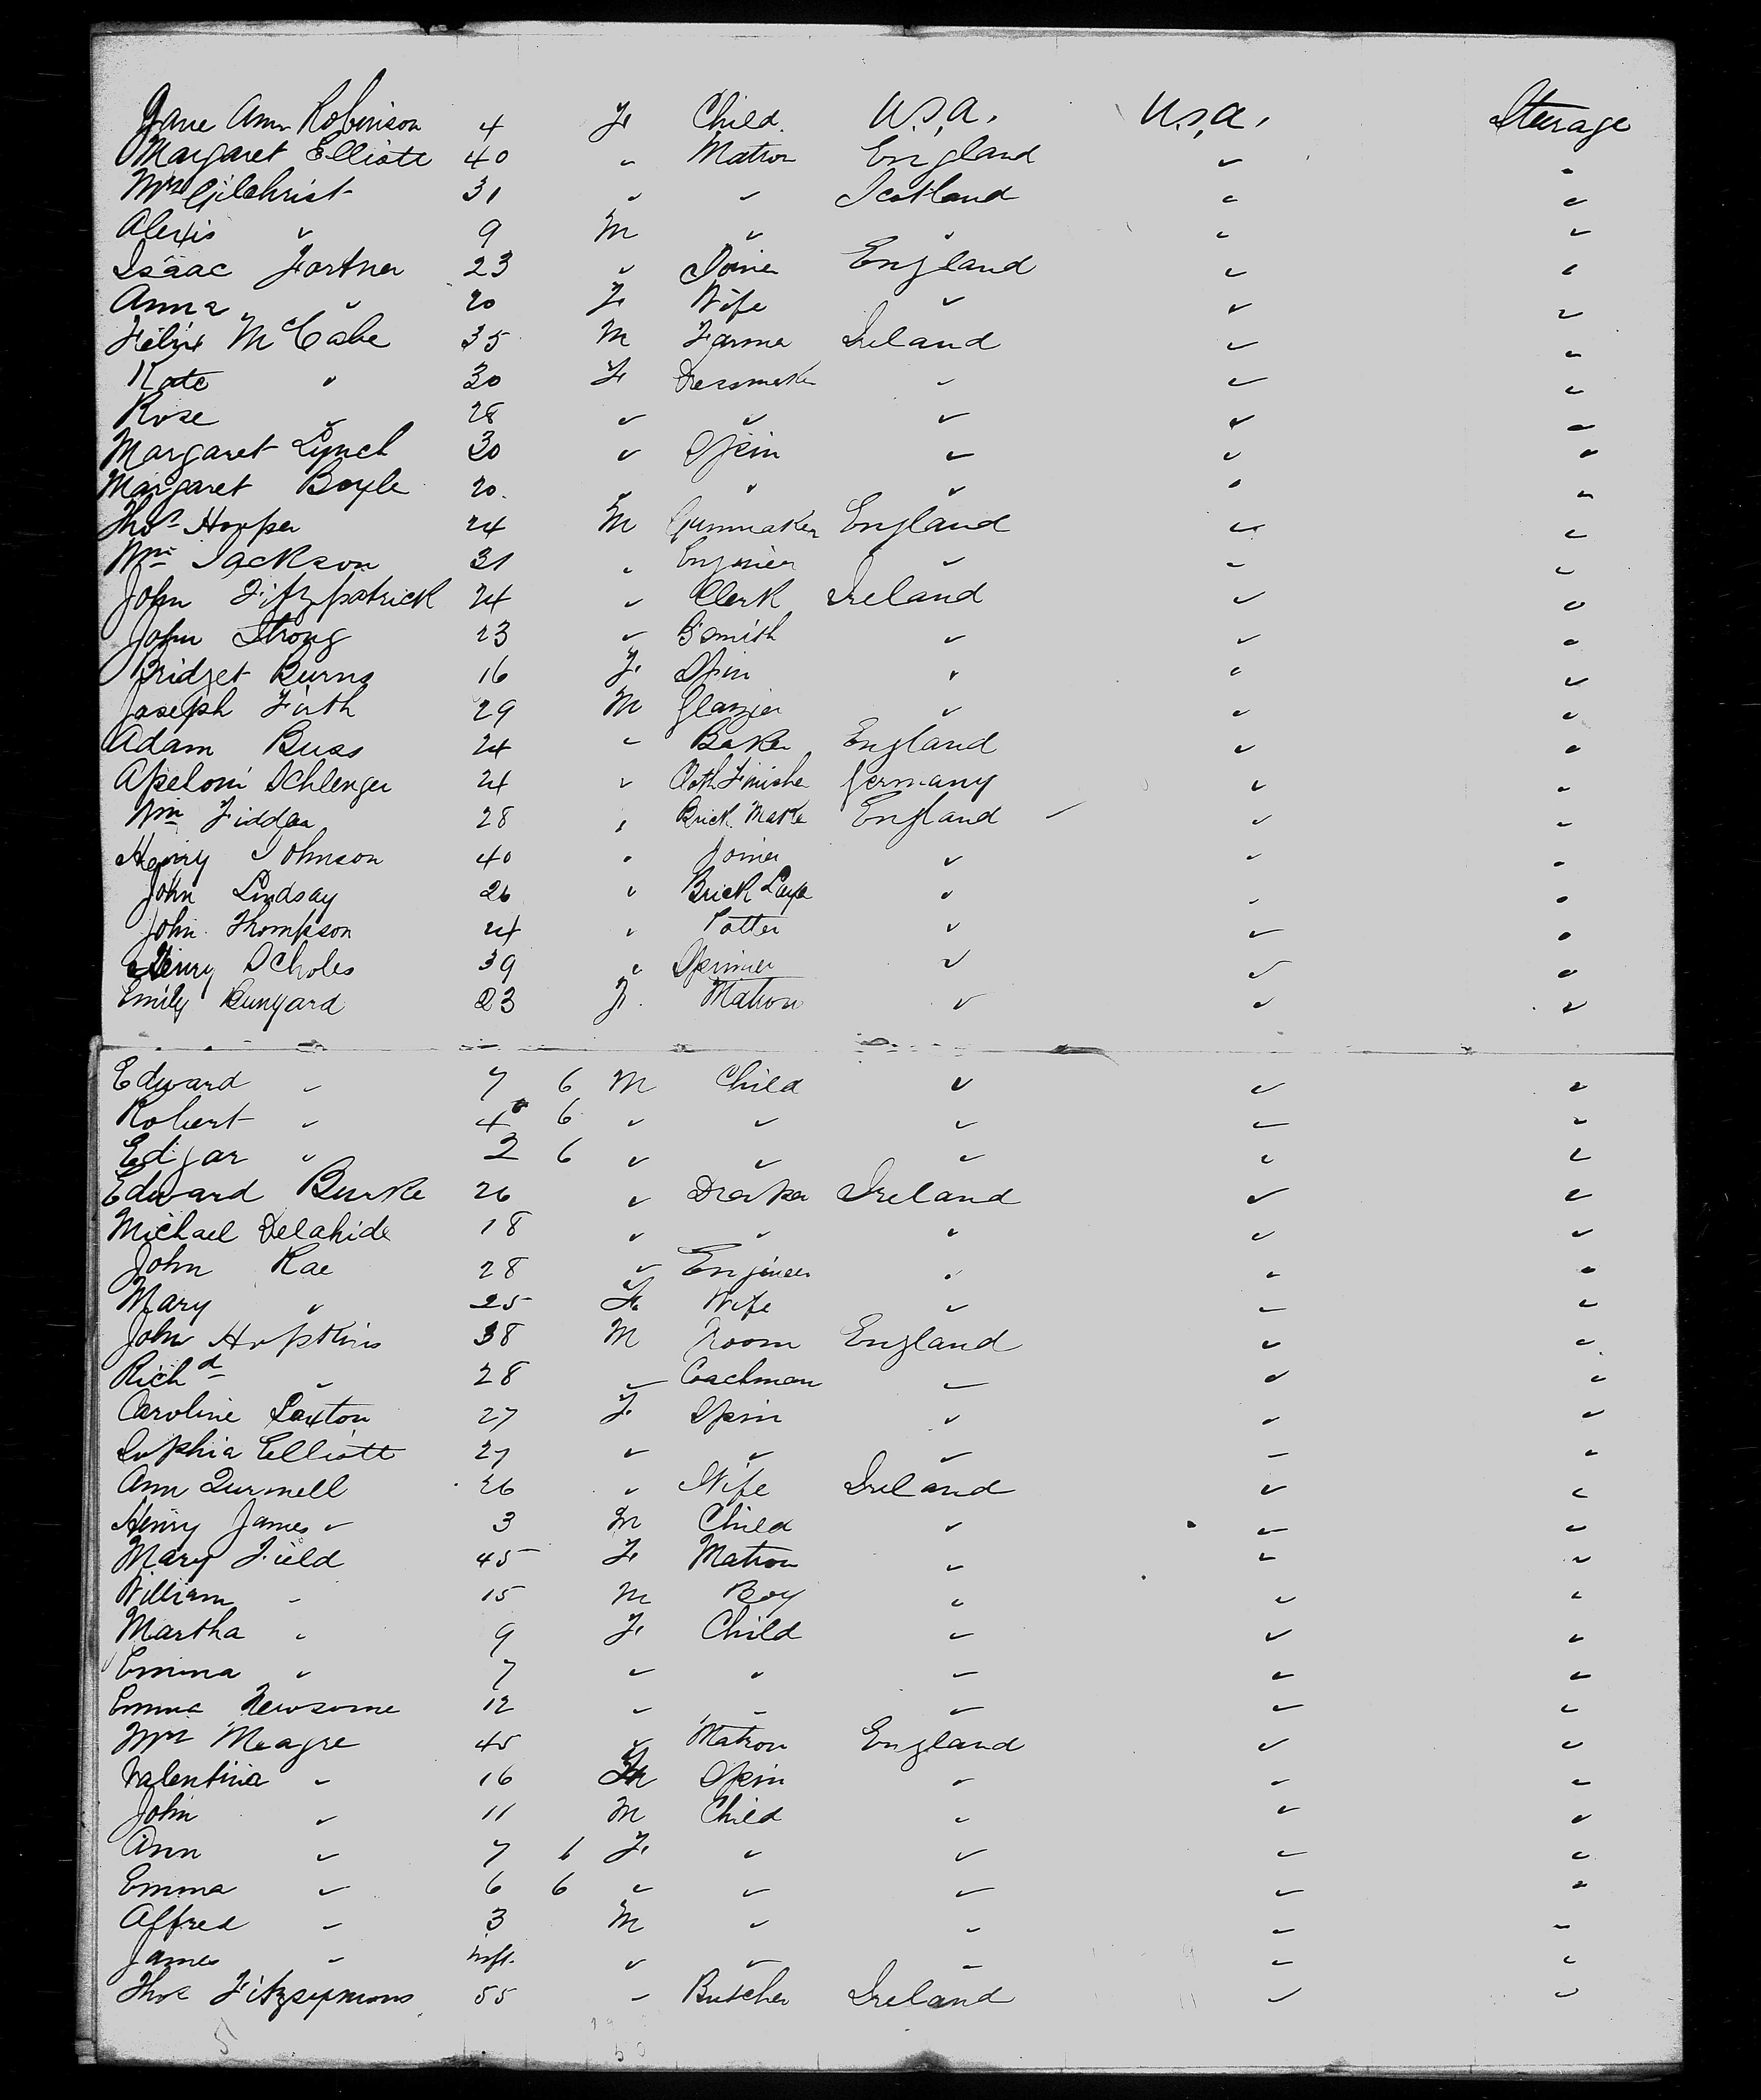 Jane Ann Robinson 4 F. Child. U.S.A. U.S.A. Sterage
Margaret Elliott 40 " Matron England " "
Mrs Gilchrist 31 " " Scotland " "
Alexis " 9 M " " " "
Isaac Fortner 23 " Joiner England " "
Anna " 20 F. Wife " " "
Felix McCabe 35 M Farmer Ireland " "
Kate " 30 F Dressmaker " " "
Rose " 28 " " " " "
Margaret Lynch 30 " Spin " " "
Margaret Boyle 20 " " " " "
Thos Hopper 24 M Gunmaker England " "
Wm Jackson 31 " Engineer " " "
John Fitzpatrick 24 " Clerk Ireland " "
John Strong 23 " Bsmith " " "
Bridget Burns 16 F. Spin " " "
Joseph Firth 29 M Glazier " " "
Adam Buss 24 " Baker England " "
Apeloni Schlenger 24 " Cloth Finisher Germany " "
Wm 28 " Brick Maker England " "
Henry Johnson 40 " Joiner " " "
John Lindsay 26 " Brick Layer " " "
John Thompson 24 " Potter " " "
Henry Scholes 39 " Spinner " " "
Emily Bungard 23 F. Matron " " "
Edward " 7 6 M Child " " "
Robert " 4 6 " " " " "
Edgar " 2 6 " " " " "
Edward Burke 26 " Draper Ireland " "
Michael Delahide 18 " " " " "
John Rae 28 " Engineer " " "
Mary " 25 F. Wife " " "
John Hopkins 38 M Groom England " "
Richd " 28 " Coachman " " "
Caroline Saxton 27 F. Spin " " "
Sophia Elliott 27 " " " " "
Ann Qurmell 26 " Wife Ireland " "
Henry James " 3 M Child " " "
Mary Field 45 F. Matron " " "
William " 15 M Boy " " "
Martha " 9 F. Child " " "
Emma " 7 " " " " "
Emma Newsome 12 " " " " "
Mrs Meagre 45 " Matron England " "
Valentina " 16 F Spin " " "
John " 11 M Child " " "
Ann " 7 6 F. " " " "
Emma " 6 6 " " " " "
Alfred " 3 M " " " "
James " inft. " " " " "
Thos Fitzsymons 55 " Butcher Ireland " "